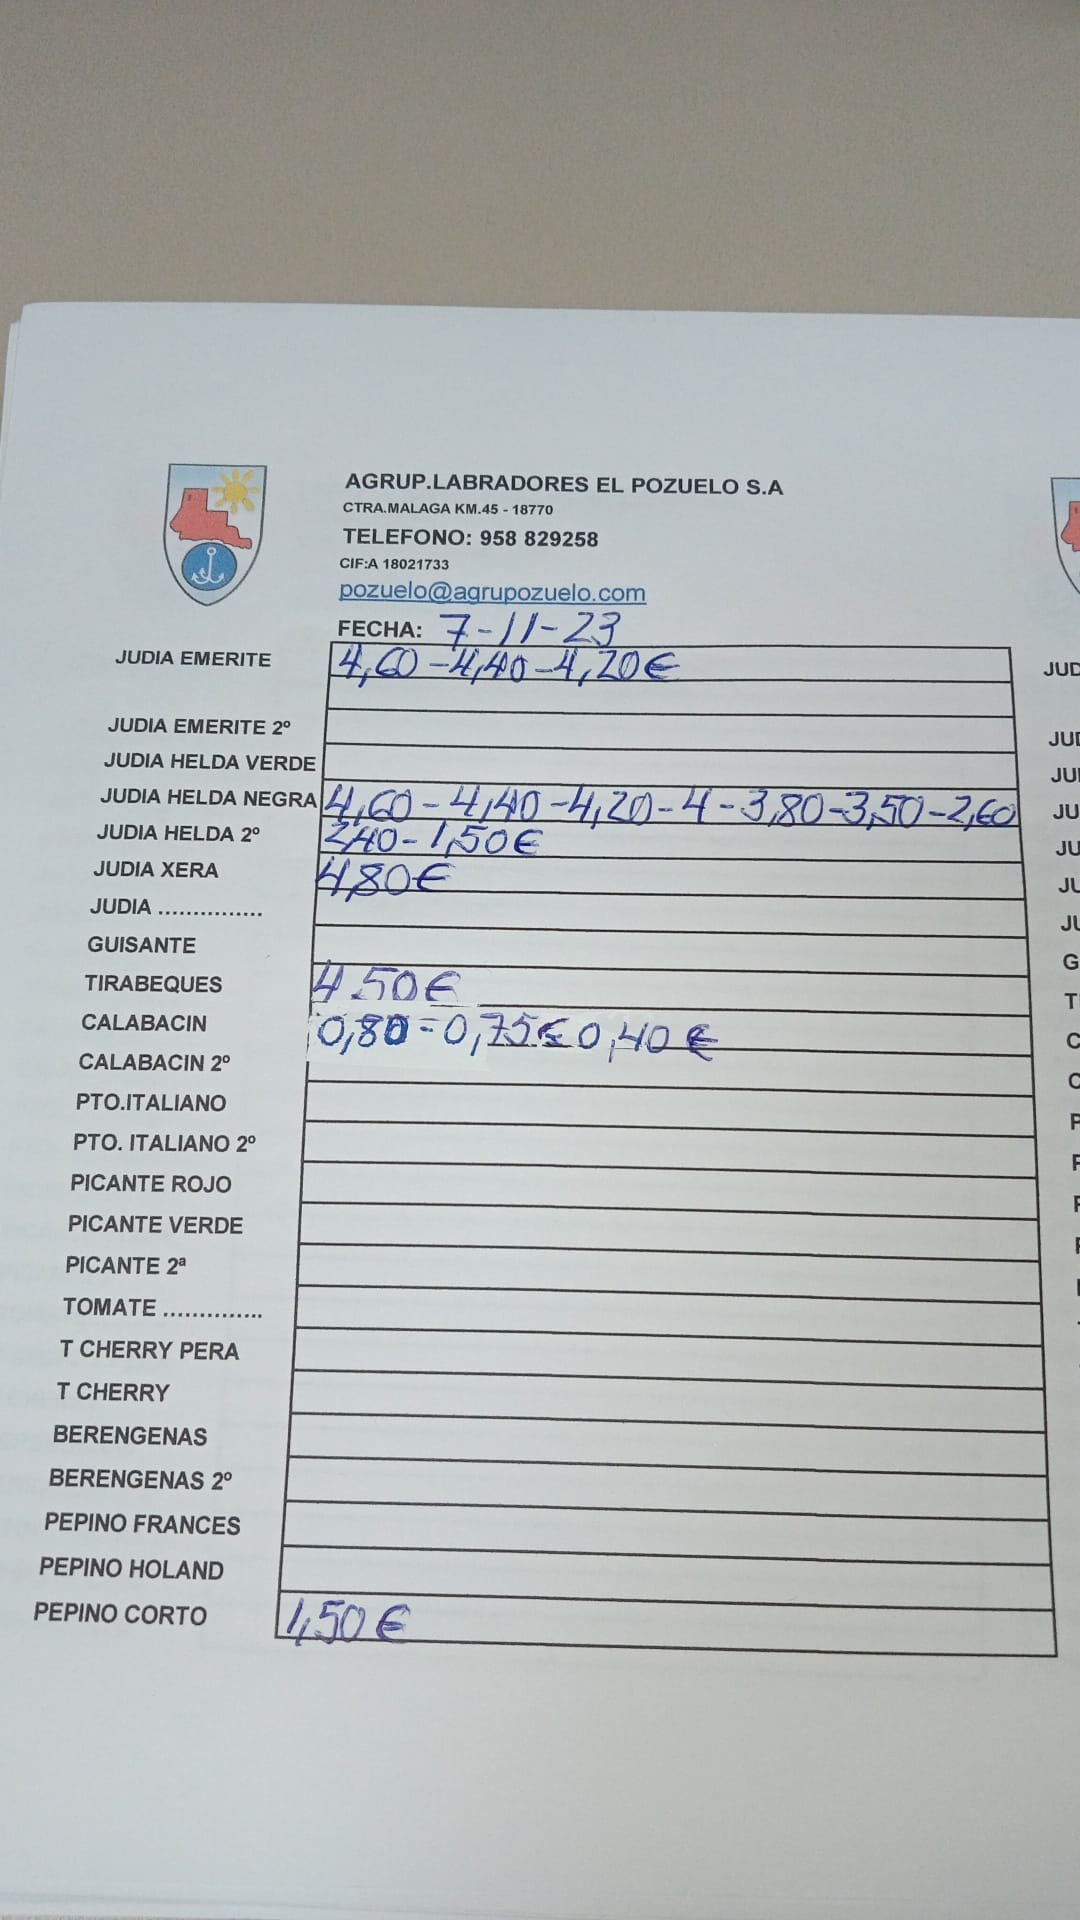 AGRUP.LABRADORES EL POZUELO S.A
CTRA.MALAGA KM.45 - 18770
TELEFONO: 958 829258
CIF:A 18021733
pozuelo@agrupozuelo.com
FECHA: 7-11-23
JUDIA EMERITE 4,60-4,40-4,20€
JUDIA EMERITE 2º
JUDIA HELDA VERDE
JUDIA HELDA NEGRA 4,60-4,40-4,20-4-3,80-3,50-2,60
JUDIA HELDA 2º 2,40-1,50€
JUDIA XERA 4,80€
JUDIA ...............
GUISANTE
TIRABEQUES 4,50€
CALABACIN 0,80-0,75€ 0,40€
CALABACIN 2º
PTO.ITALIANO
PTO. ITALIANO 2º
PICANTE ROJO
PICANTE VERDE
PICANTE 2ª
TOMATE ..............
T CHERRY PERA
T CHERRY
BERENGENAS
BERENGENAS 2º
PEPINO FRANCES
PEPINO HOLAND
PEPINO CORTO 1,50€